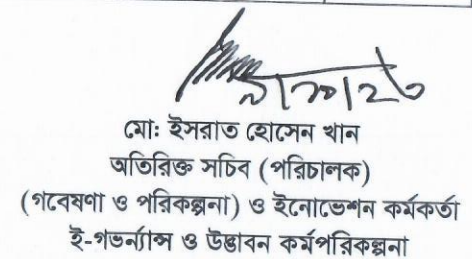 মো: ইসরাত হোসেন খান
অতিরিক্ত সচিব (পরিচালক)
(গবেষণা ও পরিকল্পনা) ও ইনোভেশন কর্মকর্তা
ই-গভর্ন্যান্স ও উদ্ভাবন কর্মপরিকল্পনা